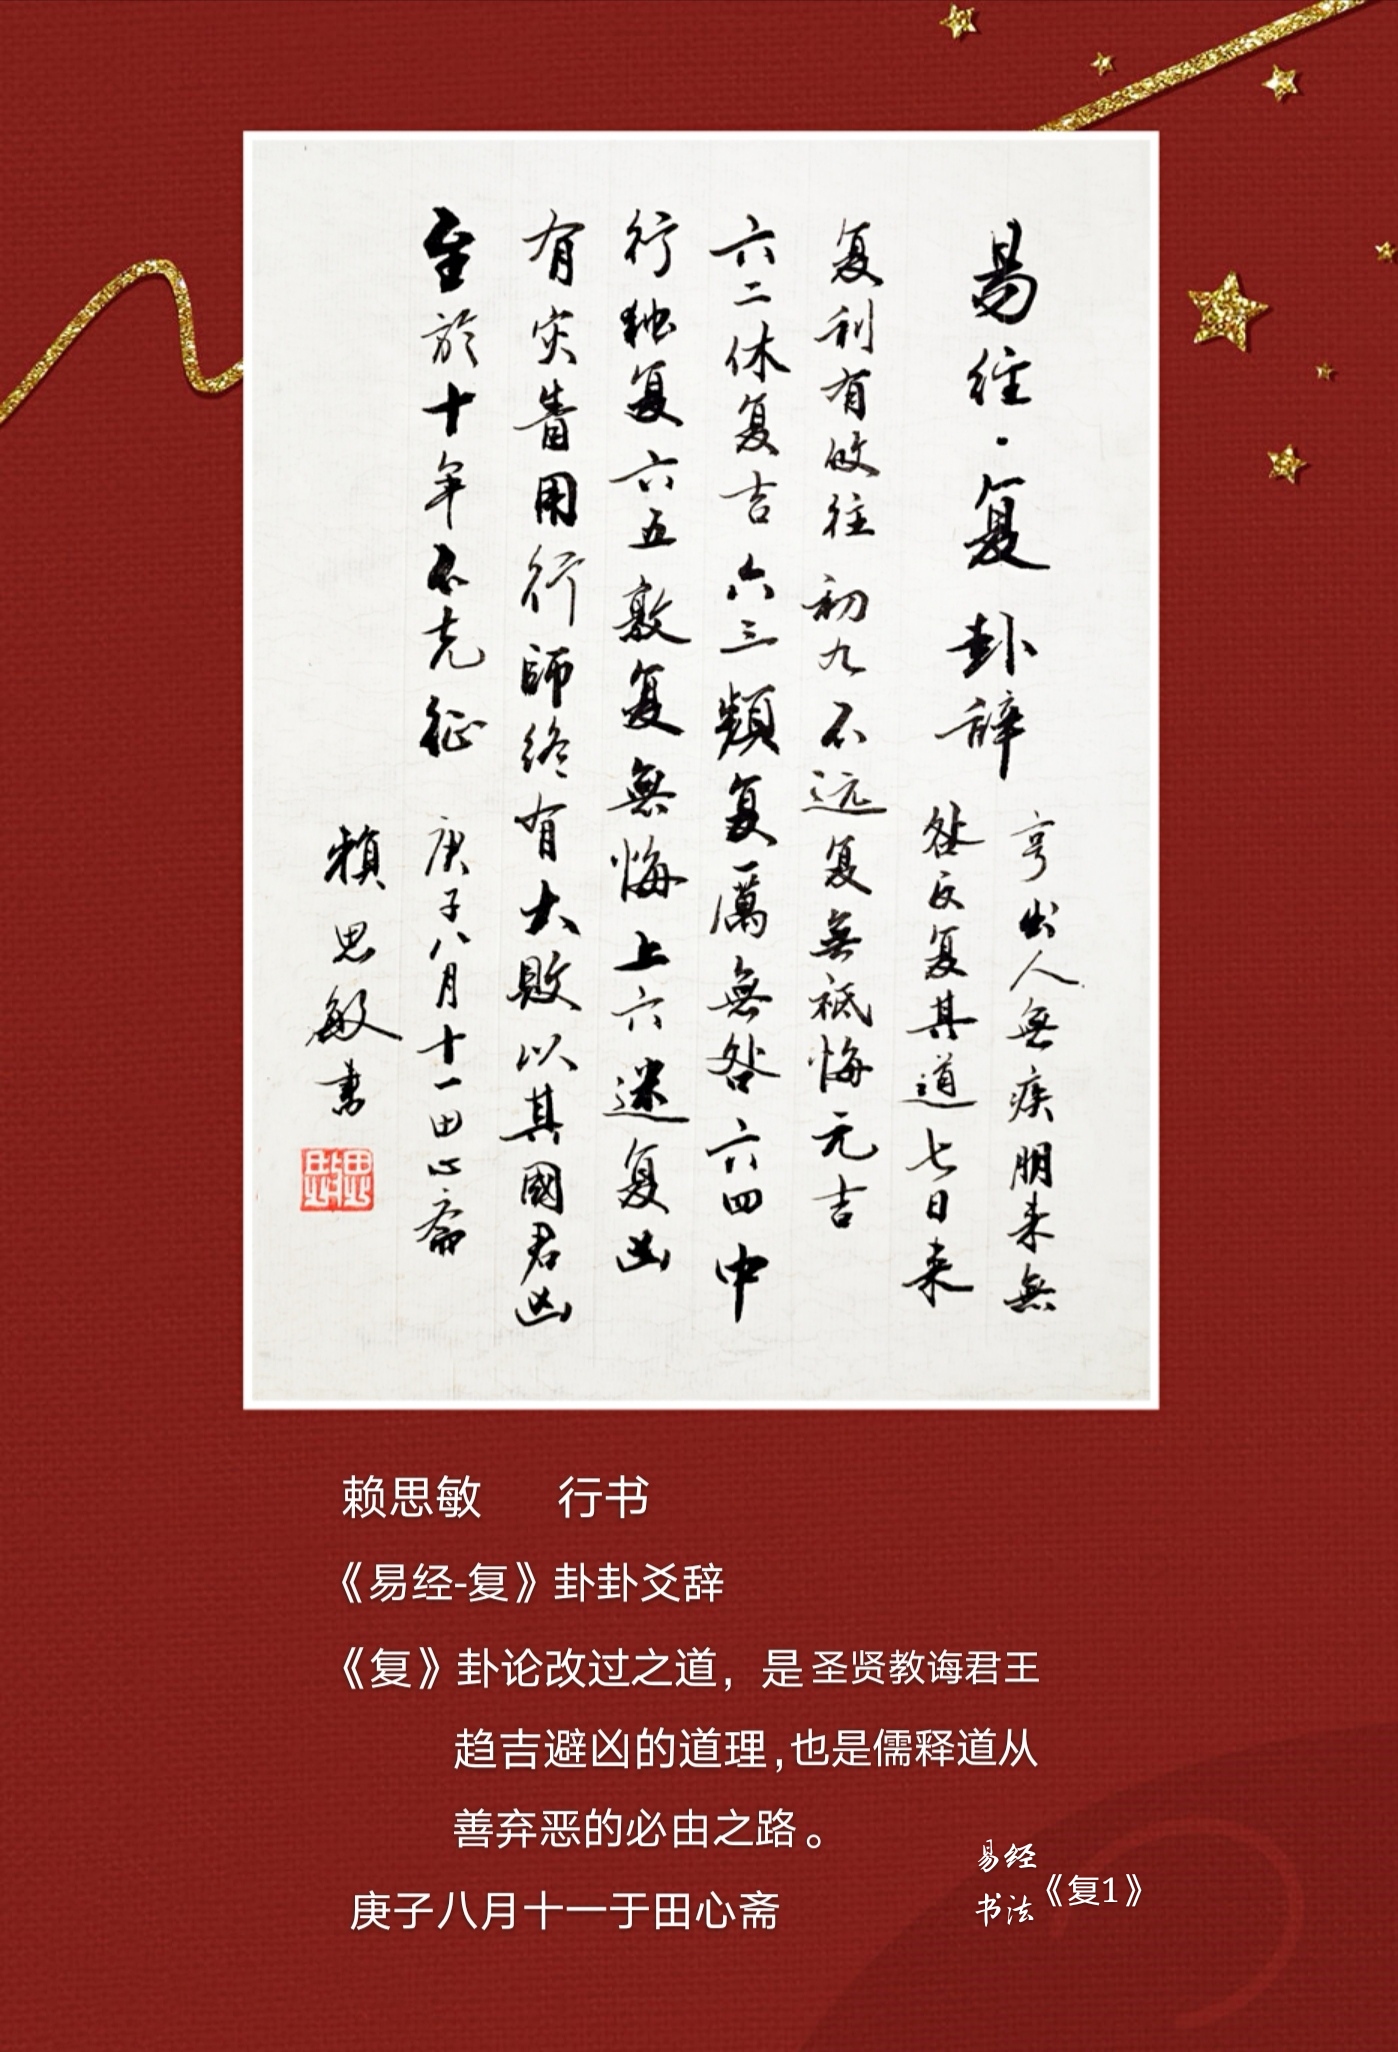 易经·复卦辞
亨出人無疾朋来無
咎反复其道七日来
复利有攸往初九不远复無祗悔元吉
六二休复吉六三频复厲無咎六四中
行独复六五敦复無悔上六迷复凶
有灾眚用行師终有大敗以其國君凶
至於十年不克征
庚子八月十一田心斋
赖思敏书
赖思敏 行书
《易经-复》卦卦爻辞
《复》卦论改过之道，是圣贤教诲君王
趋吉避凶的道理,也是儒释道从
善弃恶的必由之路。
庚子八月十一于田心斋
易经
书法
《复1》